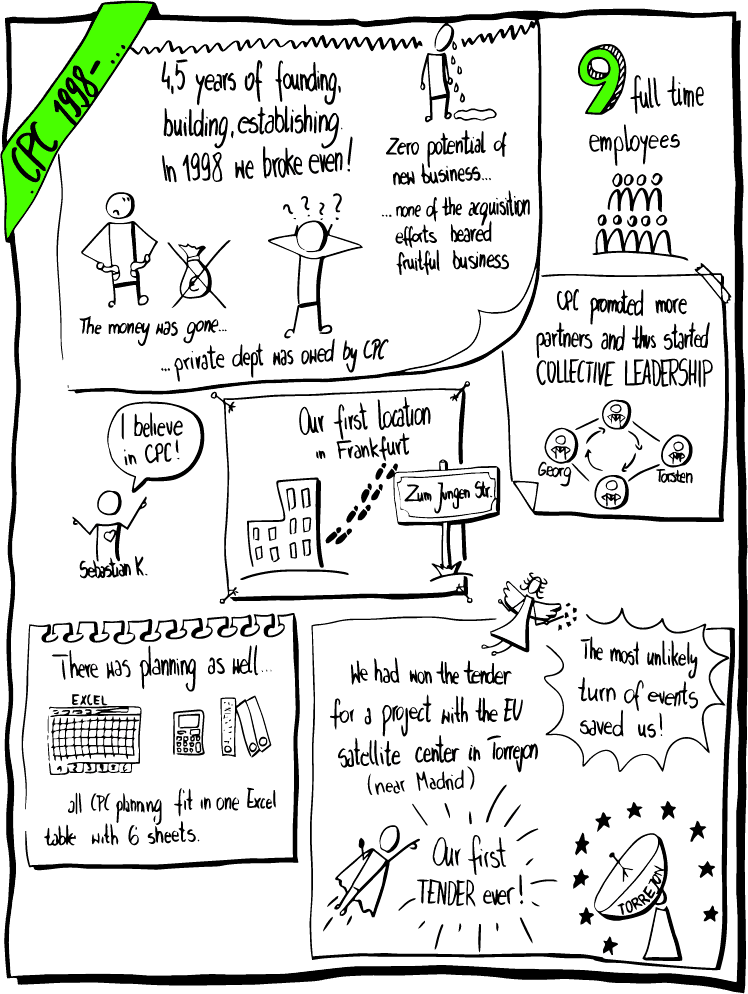 CPC 1998-...
4,5 years of founding,
building, establishing.
In 1998 we broke even!
Zero potential of
new business...
...none of the acquisition
efforts beared
fruitful business
? ? ? ?
The money was gone...
...private dept was owed by CPC
9 full time
employees
CPC promoted more
partners and thus started
COLLECTIVE LEADERSHIP
Georg
Torsten
I believe
in CPC!
Sebastian K.
Our first location
in Frankfurt
Zum Jungen Str.
There was planning as well...
EXCEL
1 2 3 4 5 6
all CPC planning fit in one Excel
table with 6 sheets.
We had won the tender
for a project with the EU
satellite center in Torrejon
(near Madrid)
The most unlikely
turn of events
saved us!
Our first
TENDER ever!
TORREJON